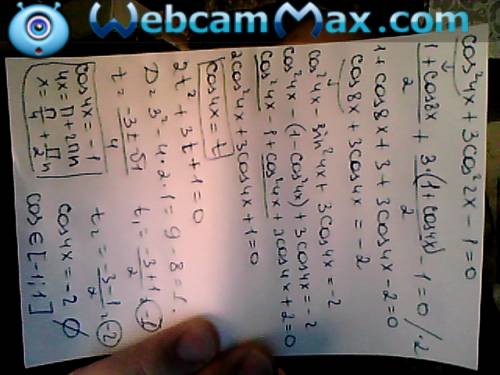 WebcamMax.com
cos²4x + 3cos²2x - 1 = 0
(1 + cos8x)/2 + 3·(1 + cos4x)/2 - 1 = 0 /·2
1 + cos8x + 3 + 3cos4x - 2 = 0
cos8x + 3cos4x = -2
cos²4x - sin²4x + 3cos4x = -2
cos²4x - (1 - cos²4x) + 3cos4x = -2
cos²4x - 1 + cos²4x + 3cos4x + 2 = 0
2cos²4x + 3cos4x + 1 = 0
cos4x = t
2t² + 3t + 1 = 0
D = 3² - 4·2·1 = 9 - 8 = 1.
t = (-3 ± √1)/4
t₁ = (-3 + 1)/2 = -1
t₂ = (-3 - 1)/2 = -2
cos4x = -1
4x = П + 2Пn
x = П/4 + Пn/2
cos4x = -2 ∅
cos ∈ [-1; 1]